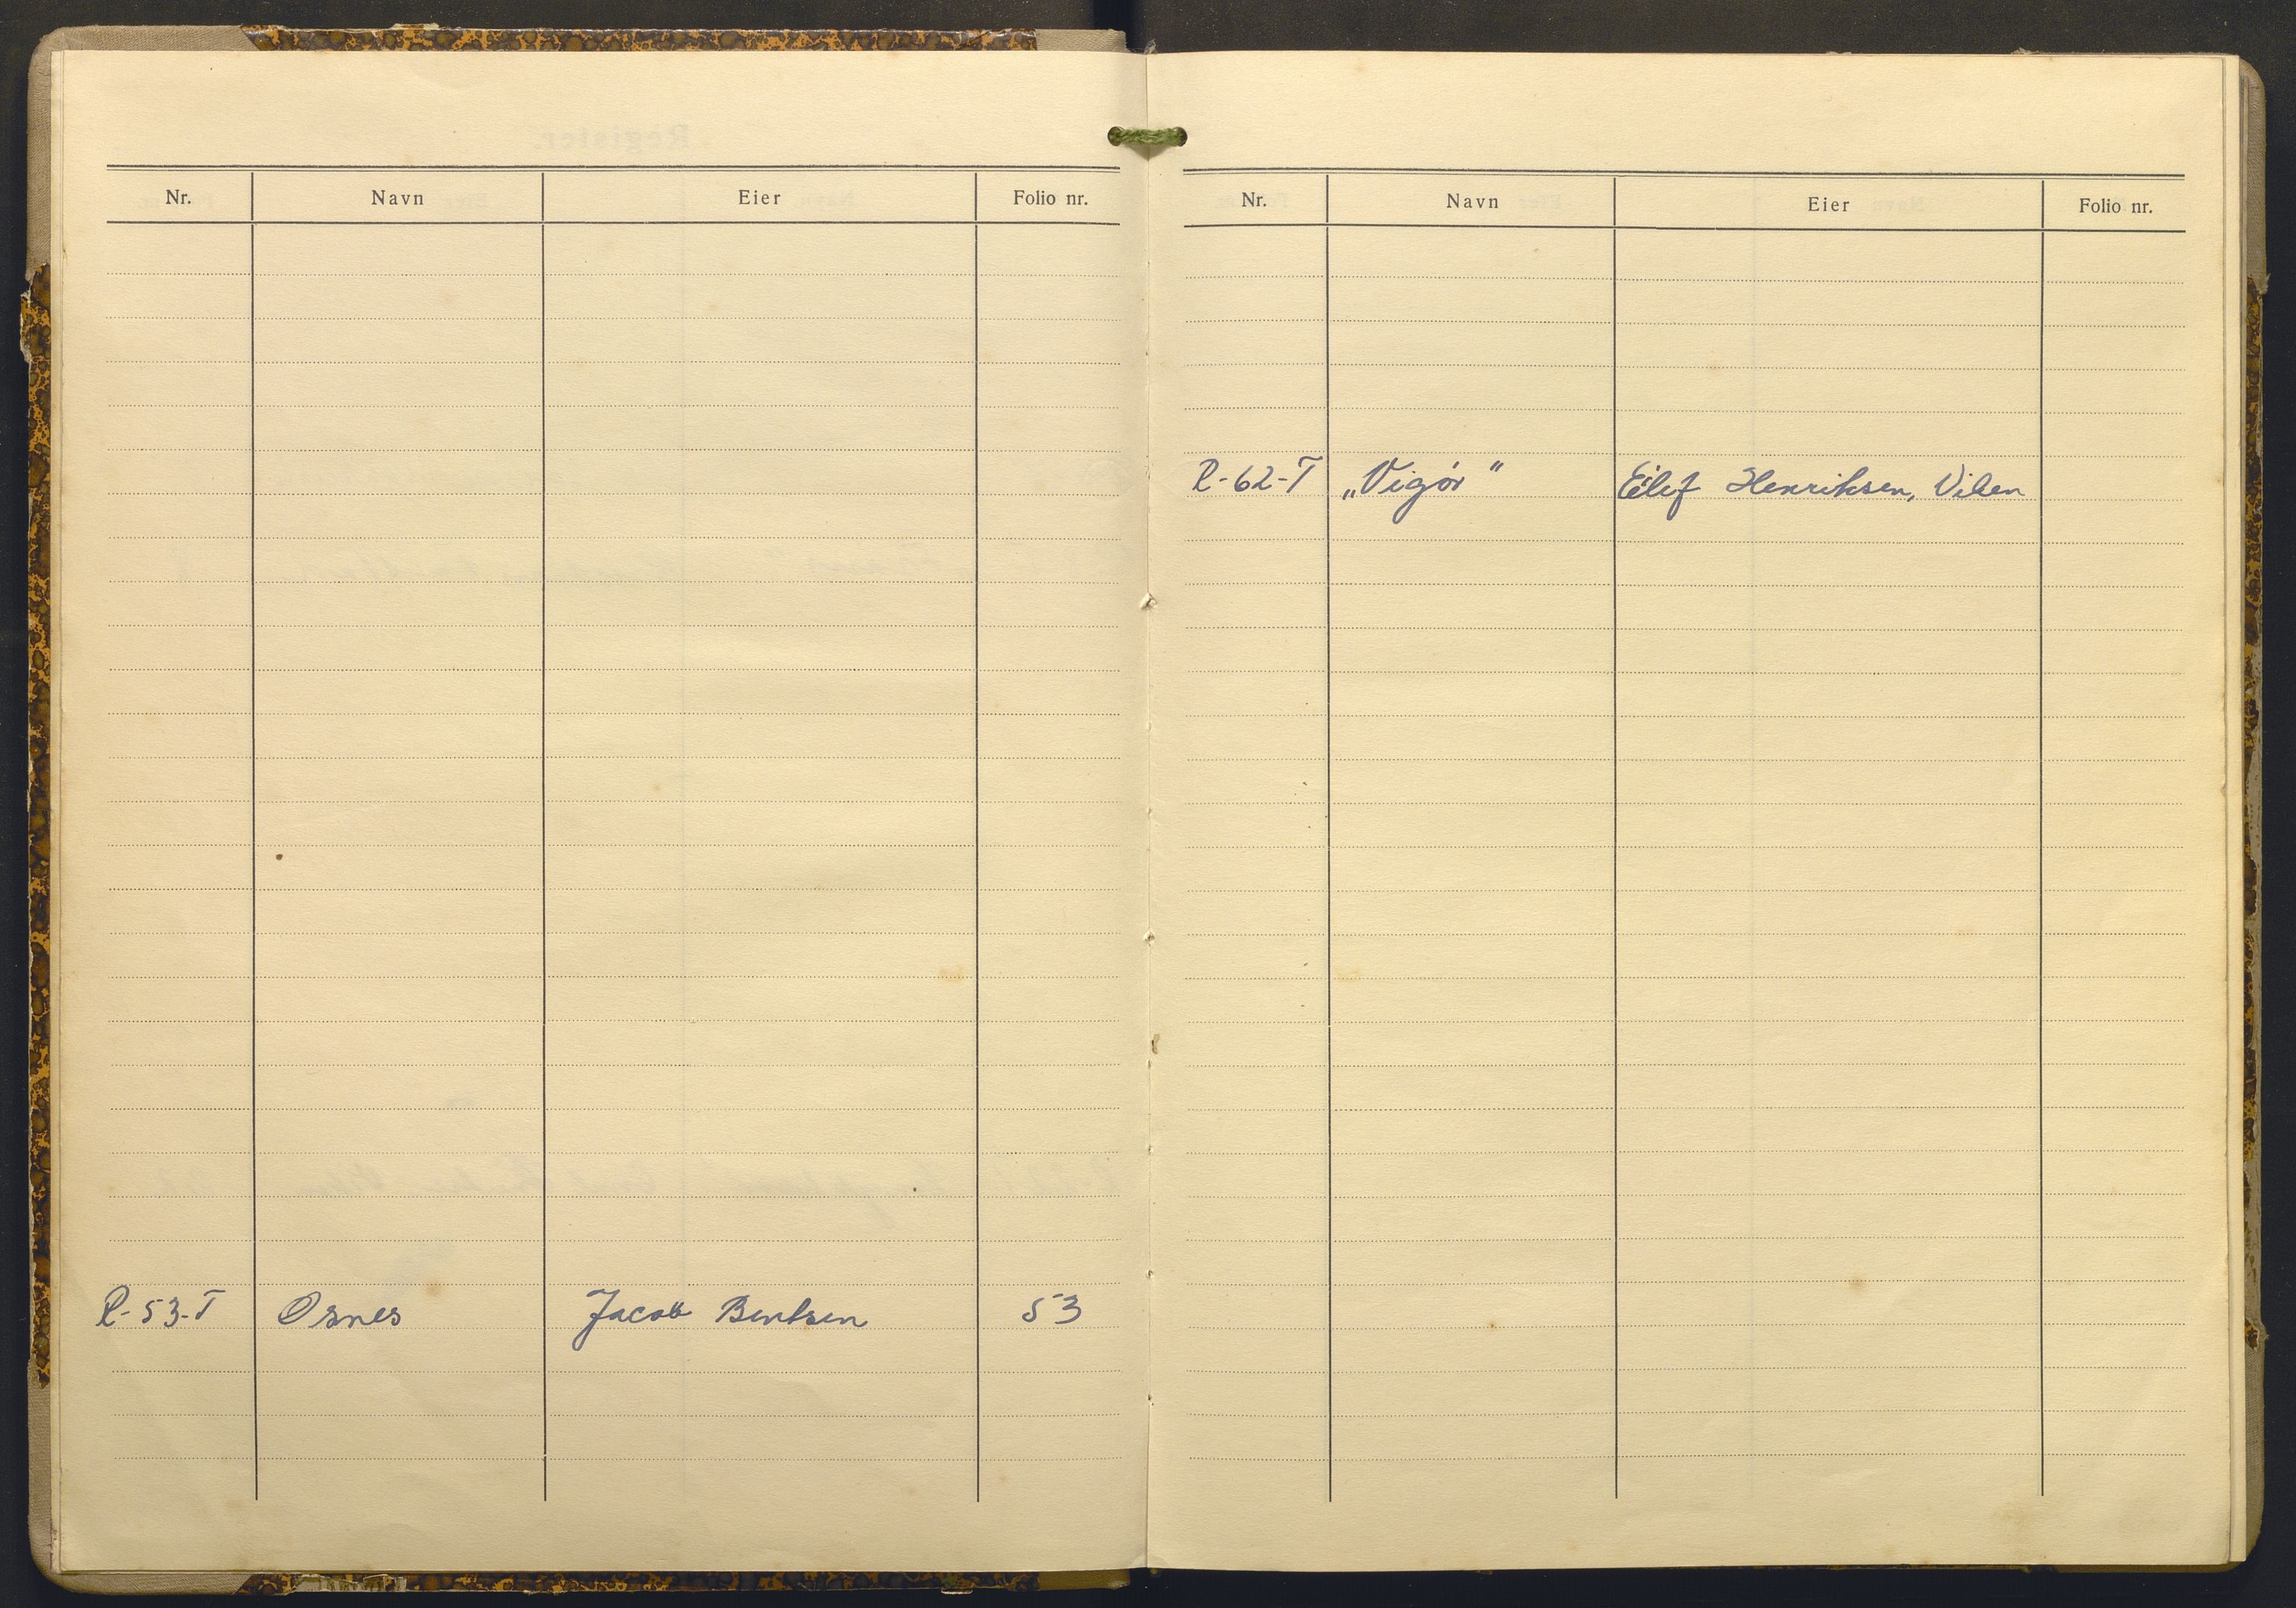 Nr. Navn Eier Folio nr.
R-53-T Osnes Jacob Bentsen 53
Nr. Navn Eier Folio nr.
R-62-T „Vigör" Eilef Henriksen,